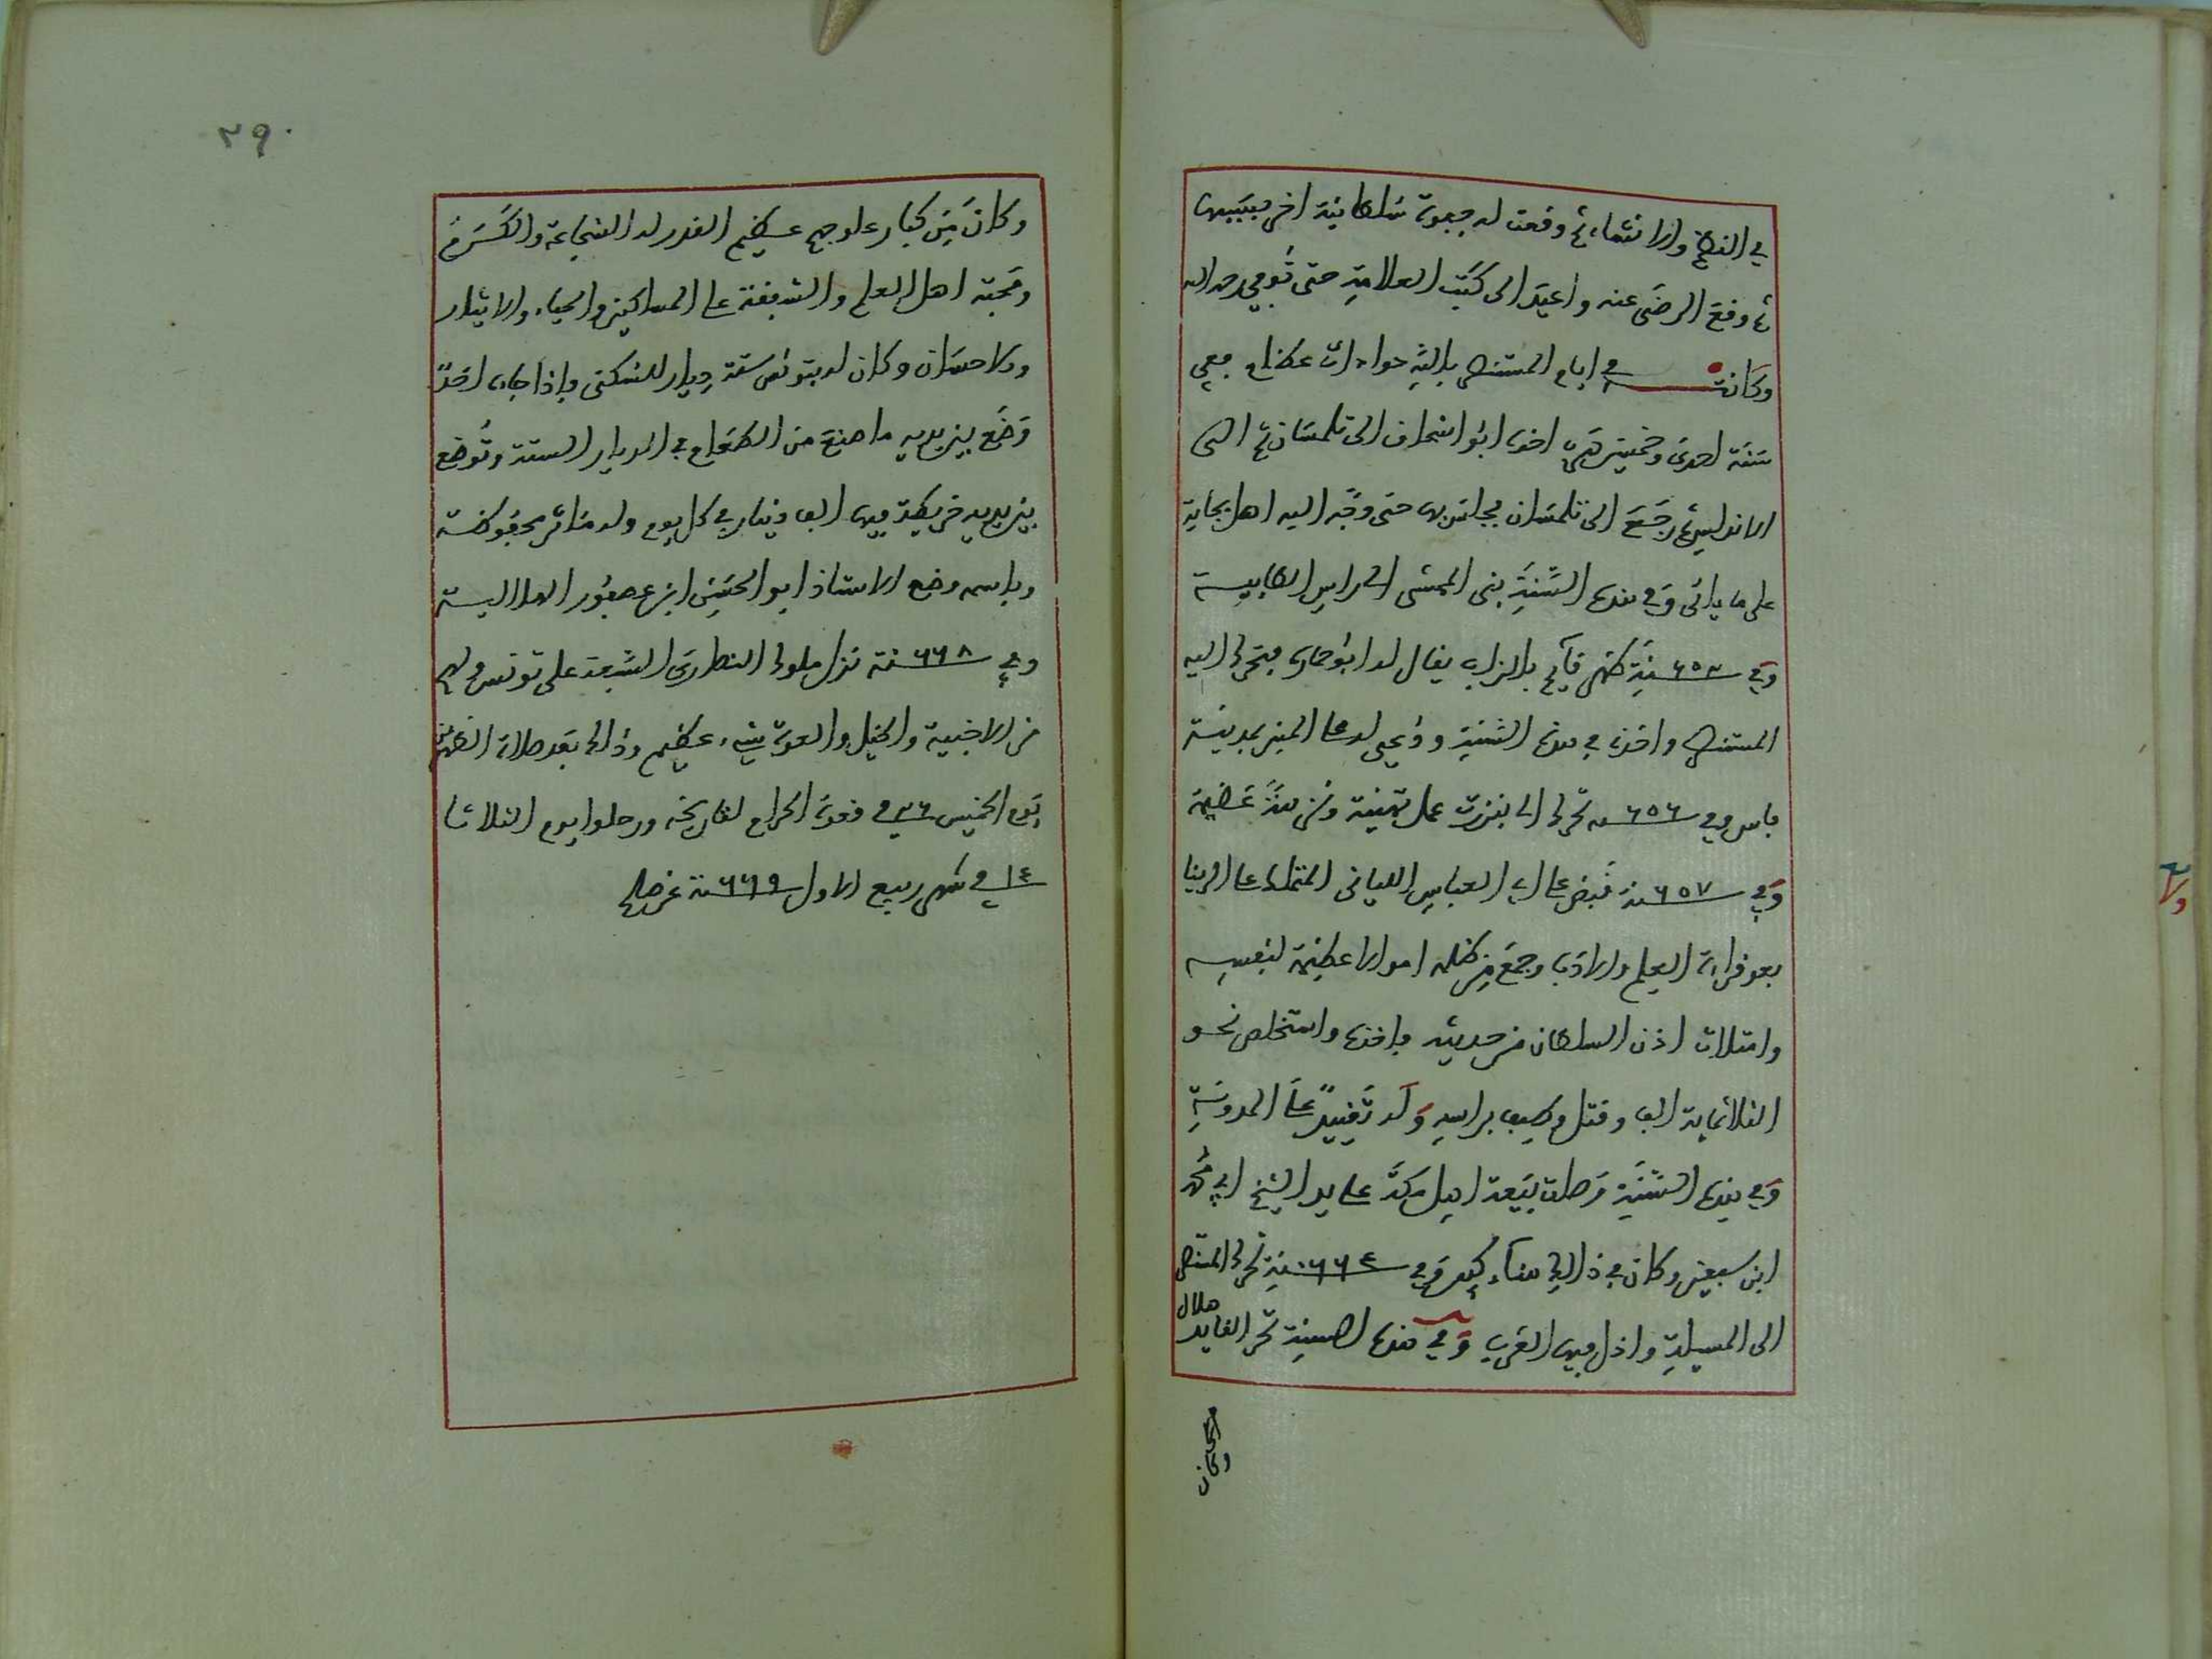 في النظم والانشاء ثم وقعت له جفوة سلطانية اخر بسببها
ثم وقع الرضى عنه واعيد الى كتب العلامة حتى توفي رحمه الله
وكانت في ايام المستنصر بالله حوادث عظام ففي
سنة احدى وخمسين هرب اخوه ابو اسحاق الى تلمسان ثم الى
الاندلس ثم رجع الى تلمسان فجلس بها حتى وجه اليه اهل بجاية
على ما ياتي وفي هذه السنة بنى الممشى الى راس الطابية
وفي ٦٥٣ سنة ظهر قايم بالزاب يقال له ابو حمارة فتحرك اليه
المستنصر واخذه في هذه السنة ودعي له على المنبر بمدينة
فاس وفي ٦٥٦ سنة تحرك الى بنزرت عمل تهنية ونزهة عظيمة
وفي ٦٥٧ سنة قبض على ابي العباس اللياني المتملك على الدنيا
بعد قراءة العلم والادب وجمع من ظله اموالا عظيمة لنفسه
وامتلات اذن السلطان من حديثه فاخذه واستخلص نحو
الثلاثماية الف وقتل وطيف براسه وله تقييد على المدونة
وفي هذه السنة وصلت بيعة اهل مكة على يد الشيخ ابي محمد
ابن سبعين وكان في ذلك هناء كبير وفي ٦٦٤ سنة تحرك المستنصر
الى المسيلة واذل فيها العرب وفي هذه السنة تحر القايد هلال
وكان
٢٩٠
وكان من كبار علوجهم عظيم القدر له الشجاعة والكرم
ومحبة اهل العلم والشفقة على المساكين والحياء والايثار
والاحسان وكان له بتونس ستة ديار للسكنى فاذا جاءه احد
وضع بين يديه ما صنع من الطعام في الديار الستة وتوضع
بين يديه خريطة فيها الف دينار في كل يوم وله مناثر محفوظة
وباسمه وضع الاستاذ ابو الحسن ابن عصفور الهلالية
وفي ٦٦٨ سنة نزل ملوك النصارى السبعة على تونس ولهم
من الاخبية والخيل والعدة شيء عظيم وذلك بعد صلاة الظهر من
يوم الخميس ٢٦ في قعدة الحرام لتاريخه ورحلوا يوم الثلاثا
١٤ في شهر ربيع الاول ٦٦٩ سنة عن صلح